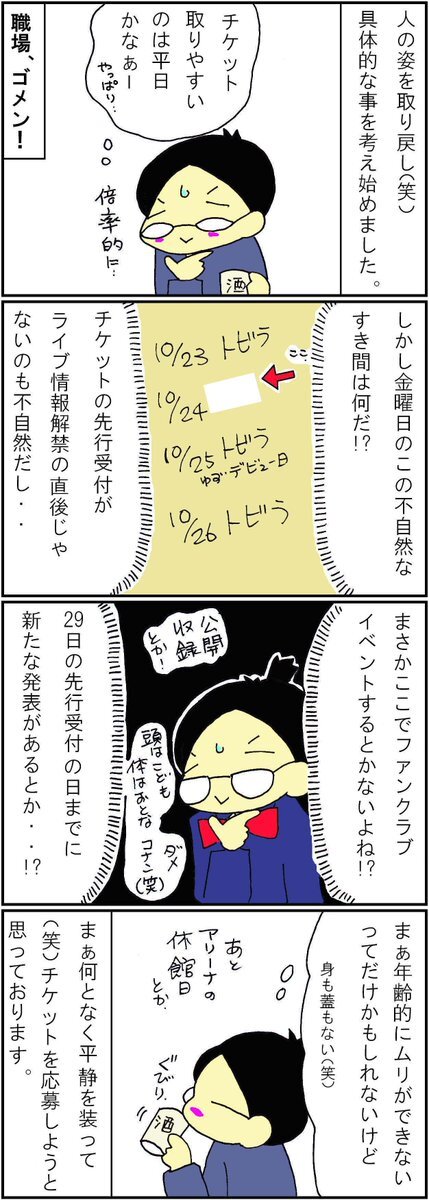 人の姿を取り戻し(笑)
具体的な事を考え始めました。
チケット
取りやすい
のは平日
かなぁー
やっぱり…
倍率的に…
職場、ゴメン!
酒
しかし金曜日のこの不自然な
すき間は何だ!?
ここ
10/23 トビラ
10/24
10/25 トビラ
ゆずデビュー日
10/26 トビラ
チケットの先行受付が
ライブ情報解禁の直後じゃ
ないのも不自然だし・・
まさかここでファンクラブ
イベントするとかないよね!?
公開
収録
とか!
頭はこども
体はおとな
ダメ
コナン(笑)
29日の先行受付の日までに
新たな発表があるとか・・!?
まぁ年齢的にムリができない
ってだけかもしれないけど
身も蓋もない(笑)
あと
アリーナの
休館日
とか。
ぐびり。
酒
まぁ何となく平静を装って
(笑)チケットを応募しようと
思っております。